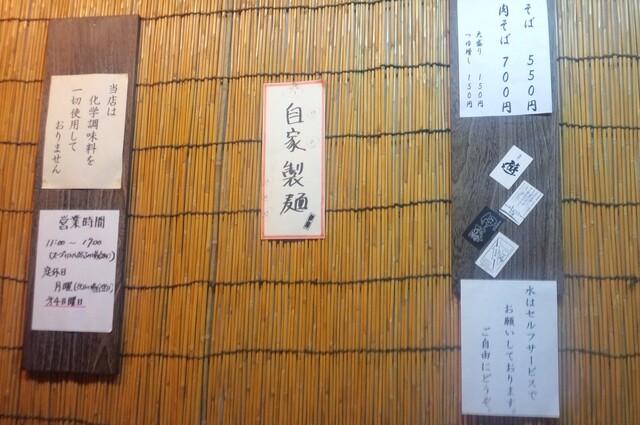 そば 550円
肉そば 700円
大盛り 150円
つけ増し 150円
自家製麺
当店は
化学調味料を
一切使用して
おりません
営業時間
11:00 〜 17:00
定休日
月曜
第4日曜日
水はセルフサービスで
お願いしております。
ご自由にどうぞ。